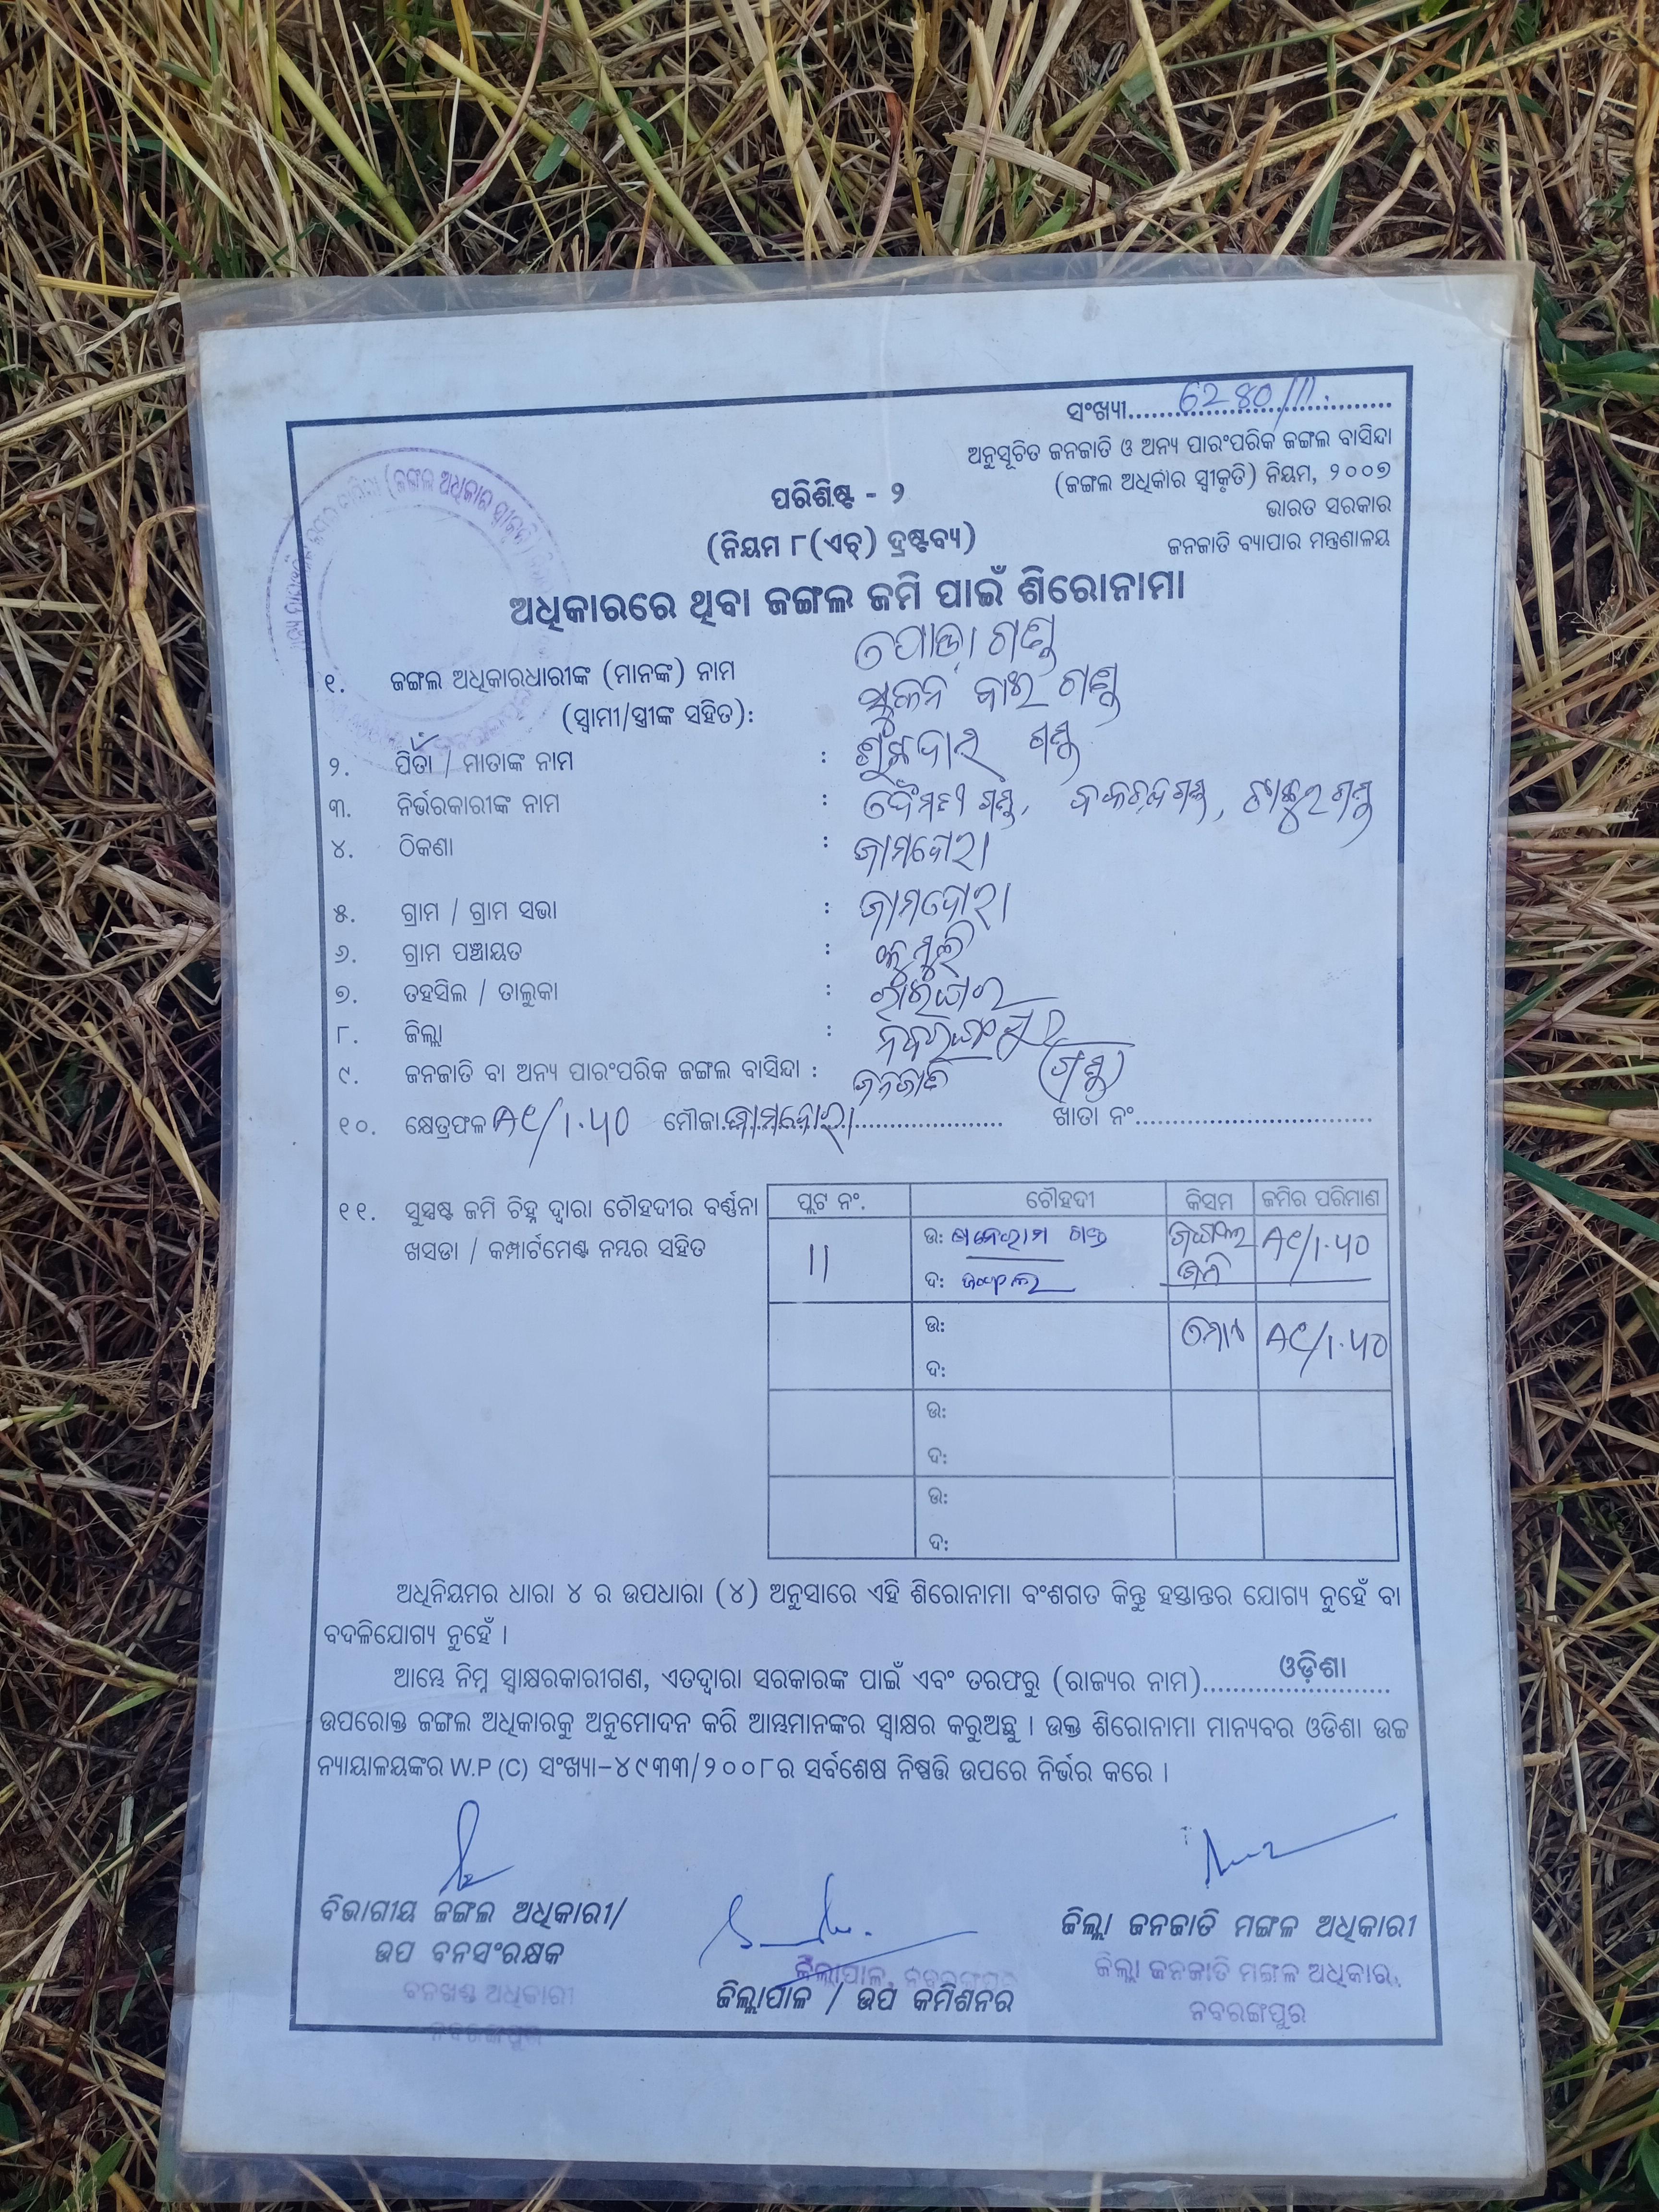 ସଂଖ୍ୟା.......6280/11.......
ଅନୁସୂଚିତ ଜନଜାତି ଓ ଅନ୍ୟ ପାରଂପରିକ ଜଙ୍ଗଲ ବାସିନ୍ଦା
(ଜଙ୍ଗଲ ଅଧିକାର ସ୍ୱୀକୃତି) ନିୟମ, ୨୦୦୭
ଭାରତ ସରକାର
ଜନଜାତି ବ୍ୟାପାର ମନ୍ତ୍ରଣାଳୟ
ପରିଶିଷ୍ଟ - ୨
(ନିୟମ ୮(ଏଚ୍) ଦ୍ରଷ୍ଟବ୍ୟ)
ଅଧିକାରରେ ଥିବା ଜଙ୍ଗଲ ଜମି ପାଇଁ ଶିରୋନାମା
୧. ଜଙ୍ଗଲ ଅଧିକାରଧାରୀଙ୍କ (ମାନଙ୍କ) ନାମ
(ସ୍ୱାମୀ/ସ୍ତ୍ରୀଙ୍କ ସହିତ):
୨. ପିତା / ମାତାଙ୍କ ନାମ :
୩. ନିର୍ଭରକାରୀଙ୍କ ନାମ :
୪. ଠିକଣା : ଜାମଦୋରା
୫. ଗ୍ରାମ / ଗ୍ରାମ ସଭା : ଜାମଦୋରା
୬. ଗ୍ରାମ ପଞ୍ଚାୟତ :
୭. ତହସିଲ / ତାଲୁକା :
୮. ଜିଲ୍ଲା : ନବରଙ୍ଗପୁର
୯. ଜନଜାତି ବା ଅନ୍ୟ ପାରଂପରିକ ଜଙ୍ଗଲ ବାସିନ୍ଦା : ଜନଜାତି (ଗଣ୍ଡ)
୧୦. କ୍ଷେତ୍ରଫଳ Ac/1.50 ମୌଜା..ଜାମଦୋରା.................... ଖାତା ନଂ................................
୧୧. ସୁସ୍ପଷ୍ଟ ଜମି ଚିହ୍ନ ଦ୍ୱାରା ଚୌହଦୀର ବର୍ଣ୍ଣନା
ଖସଡା / କମ୍ପାର୍ଟମେଣ୍ଟ ନମ୍ୱର ସହିତ
ପ୍ଲଟ ନଂ. ଚୌହଦୀ କିସମ ଜମିର ପରିମାଣ
11 ଉ: ଗଣ୍ଡ ଜଙ୍ଗଲ Ac/1.50
ଦ: ଜଙ୍ଗଲ ଜମି
ଉ: Ac/1.50
ଦ:
ଉ:
ଦ:
ଉ:
ଦ:
ଅଧିନିୟମର ଧାରା ୪ ର ଉପଧାରା (୪) ଅନୁସାରେ ଏହି ଶିରୋନାମା ବଂଶଗତ କିନ୍ତୁ ହସ୍ତାନ୍ତର ଯୋଗ୍ୟ ନୁହେଁ ବା
ବଦଳିଯୋଗ୍ୟ ନୁହେଁ ।
ଆମ୍ଭେ ନିମ୍ନ ସ୍ୱାକ୍ଷରକାରୀଗଣ, ଏତଦ୍ଦ୍ୱାରା ସରକାରଙ୍କ ପାଇଁ ଏବଂ ତରଫରୁ (ରାଜ୍ୟର ନାମ).......ଓଡ଼ିଶା.......
ଉପରୋକ୍ତ ଜଙ୍ଗଲ ଅଧିକାରକୁ ଅନୁମୋଦନ କରି ଆମ୍ଭମାନଙ୍କର ସ୍ୱାକ୍ଷର କରୁଅଛୁ । ଉକ୍ତ ଶିରୋନାମା ମାନ୍ୟବର ଓଡିଶା ଉଚ୍ଚ
ନ୍ୟାୟାଳୟଙ୍କର W.P (C) ସଂଖ୍ୟା-୪୯୩୩/୨୦୦୮ର ସର୍ବଶେଷ ନିଷ୍ପତ୍ତି ଉପରେ ନିର୍ଭର କରେ ।
ବିଭାଗୀୟ ଜଙ୍ଗଲ ଅଧିକାରୀ/
ଉପ ବନସଂରକ୍ଷକ
ବନଖଣ୍ଡ ଅଧିକାରୀ
ନବରଙ୍ଗପୁର
ଜିଲ୍ଲାପାଳ, ନବରଙ୍ଗପୁର
ଜିଲ୍ଲାପାଳ / ଉପ କମିଶନର
ଜିଲ୍ଲା ଜନଜାତି ମଙ୍ଗଳ ଅଧିକାରୀ
ଜିଲ୍ଲା ଜନଜାତି ମଙ୍ଗଳ ଅଧିକାରୀ,
ନବରଙ୍ଗପୁର